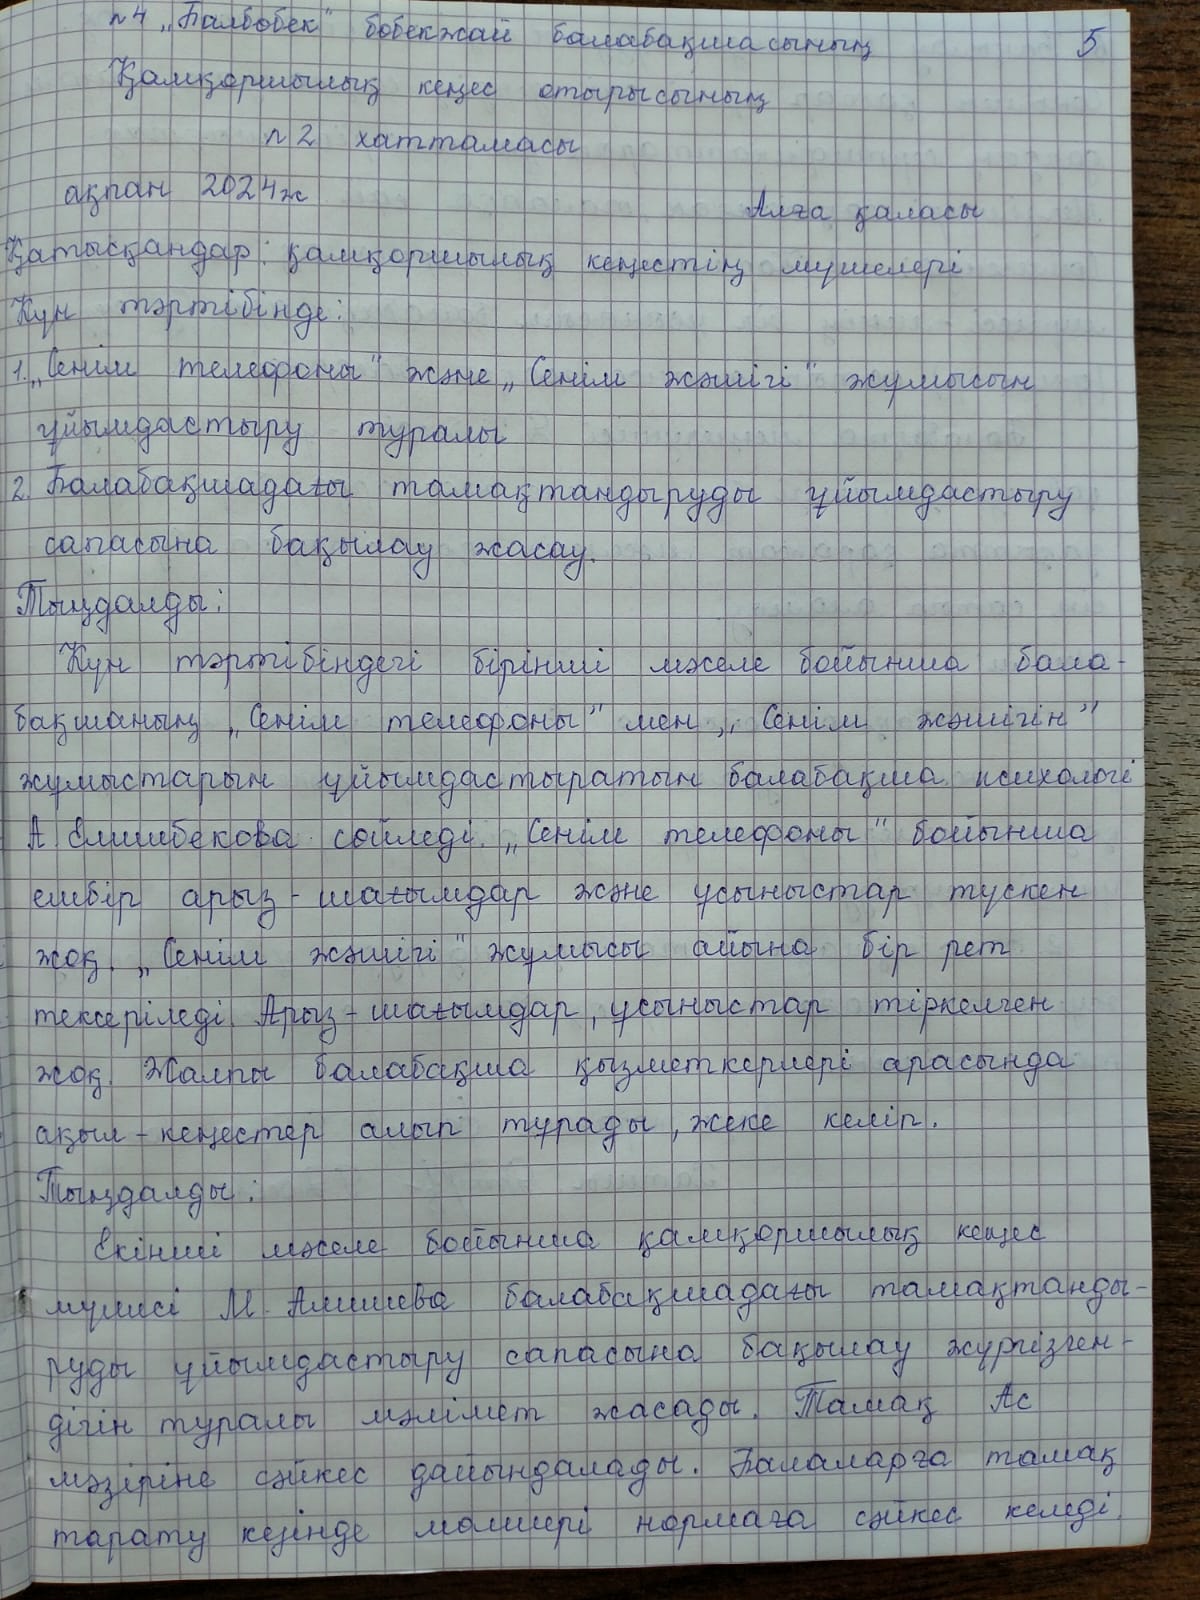 5
n4 „Балбөбек" бөбекжай балабақшасының
Қамқоршылық кеңес отырысының
n2 хаттамасы
ақпан 2024ж
Алға қаласы
Қатысқандар: қамқоршылық кеңестің мүшелері
Күн тәртібінде:
1. „Сенім телефоны" және „Сенім жәшігі" жұмысын
ұйымдастыру туралы
2. Балабақшадағы тамақтандыруды ұйымдастыру
сапасына бақылау жасау.
Тыңдалды:
Күн тәртібіндегі бірінші мәселе бойынша бала-
бақшаның „Сенім телефоны" мен „Сенім жәшігін"
жұмыстарын ұйымдастыратын балабақша психологі
А Елшибекова сөйледі. „Сенім телефоны" бойынша
ешбір арыз-шағымдар және ұсыныстар түскен
жоқ. „Сенім жәшігі" жұмысы айына бір рет
тексеріледі. Арыз-шағымдар, ұсыныстар тіркелген
жоқ. Жалпы балабақша қызметкерлері арасында
ақыл-кеңестер алып тұрады, жеке келіп.
Тыңдалды:
Екінші мәселе бойынша қамқоршылық кеңес
мүшесі М. Алишева балабақшадағы тамақтанды-
руды ұйымдастыру сапасына бақылау жүргізген-
дігін туралы мәлімет жасады. Тамақ Ас
мәзіріне сәйкес дайындалады. Балаларға тамақ
тарату кезінде мөлшері нормаға сәйкес келеді.